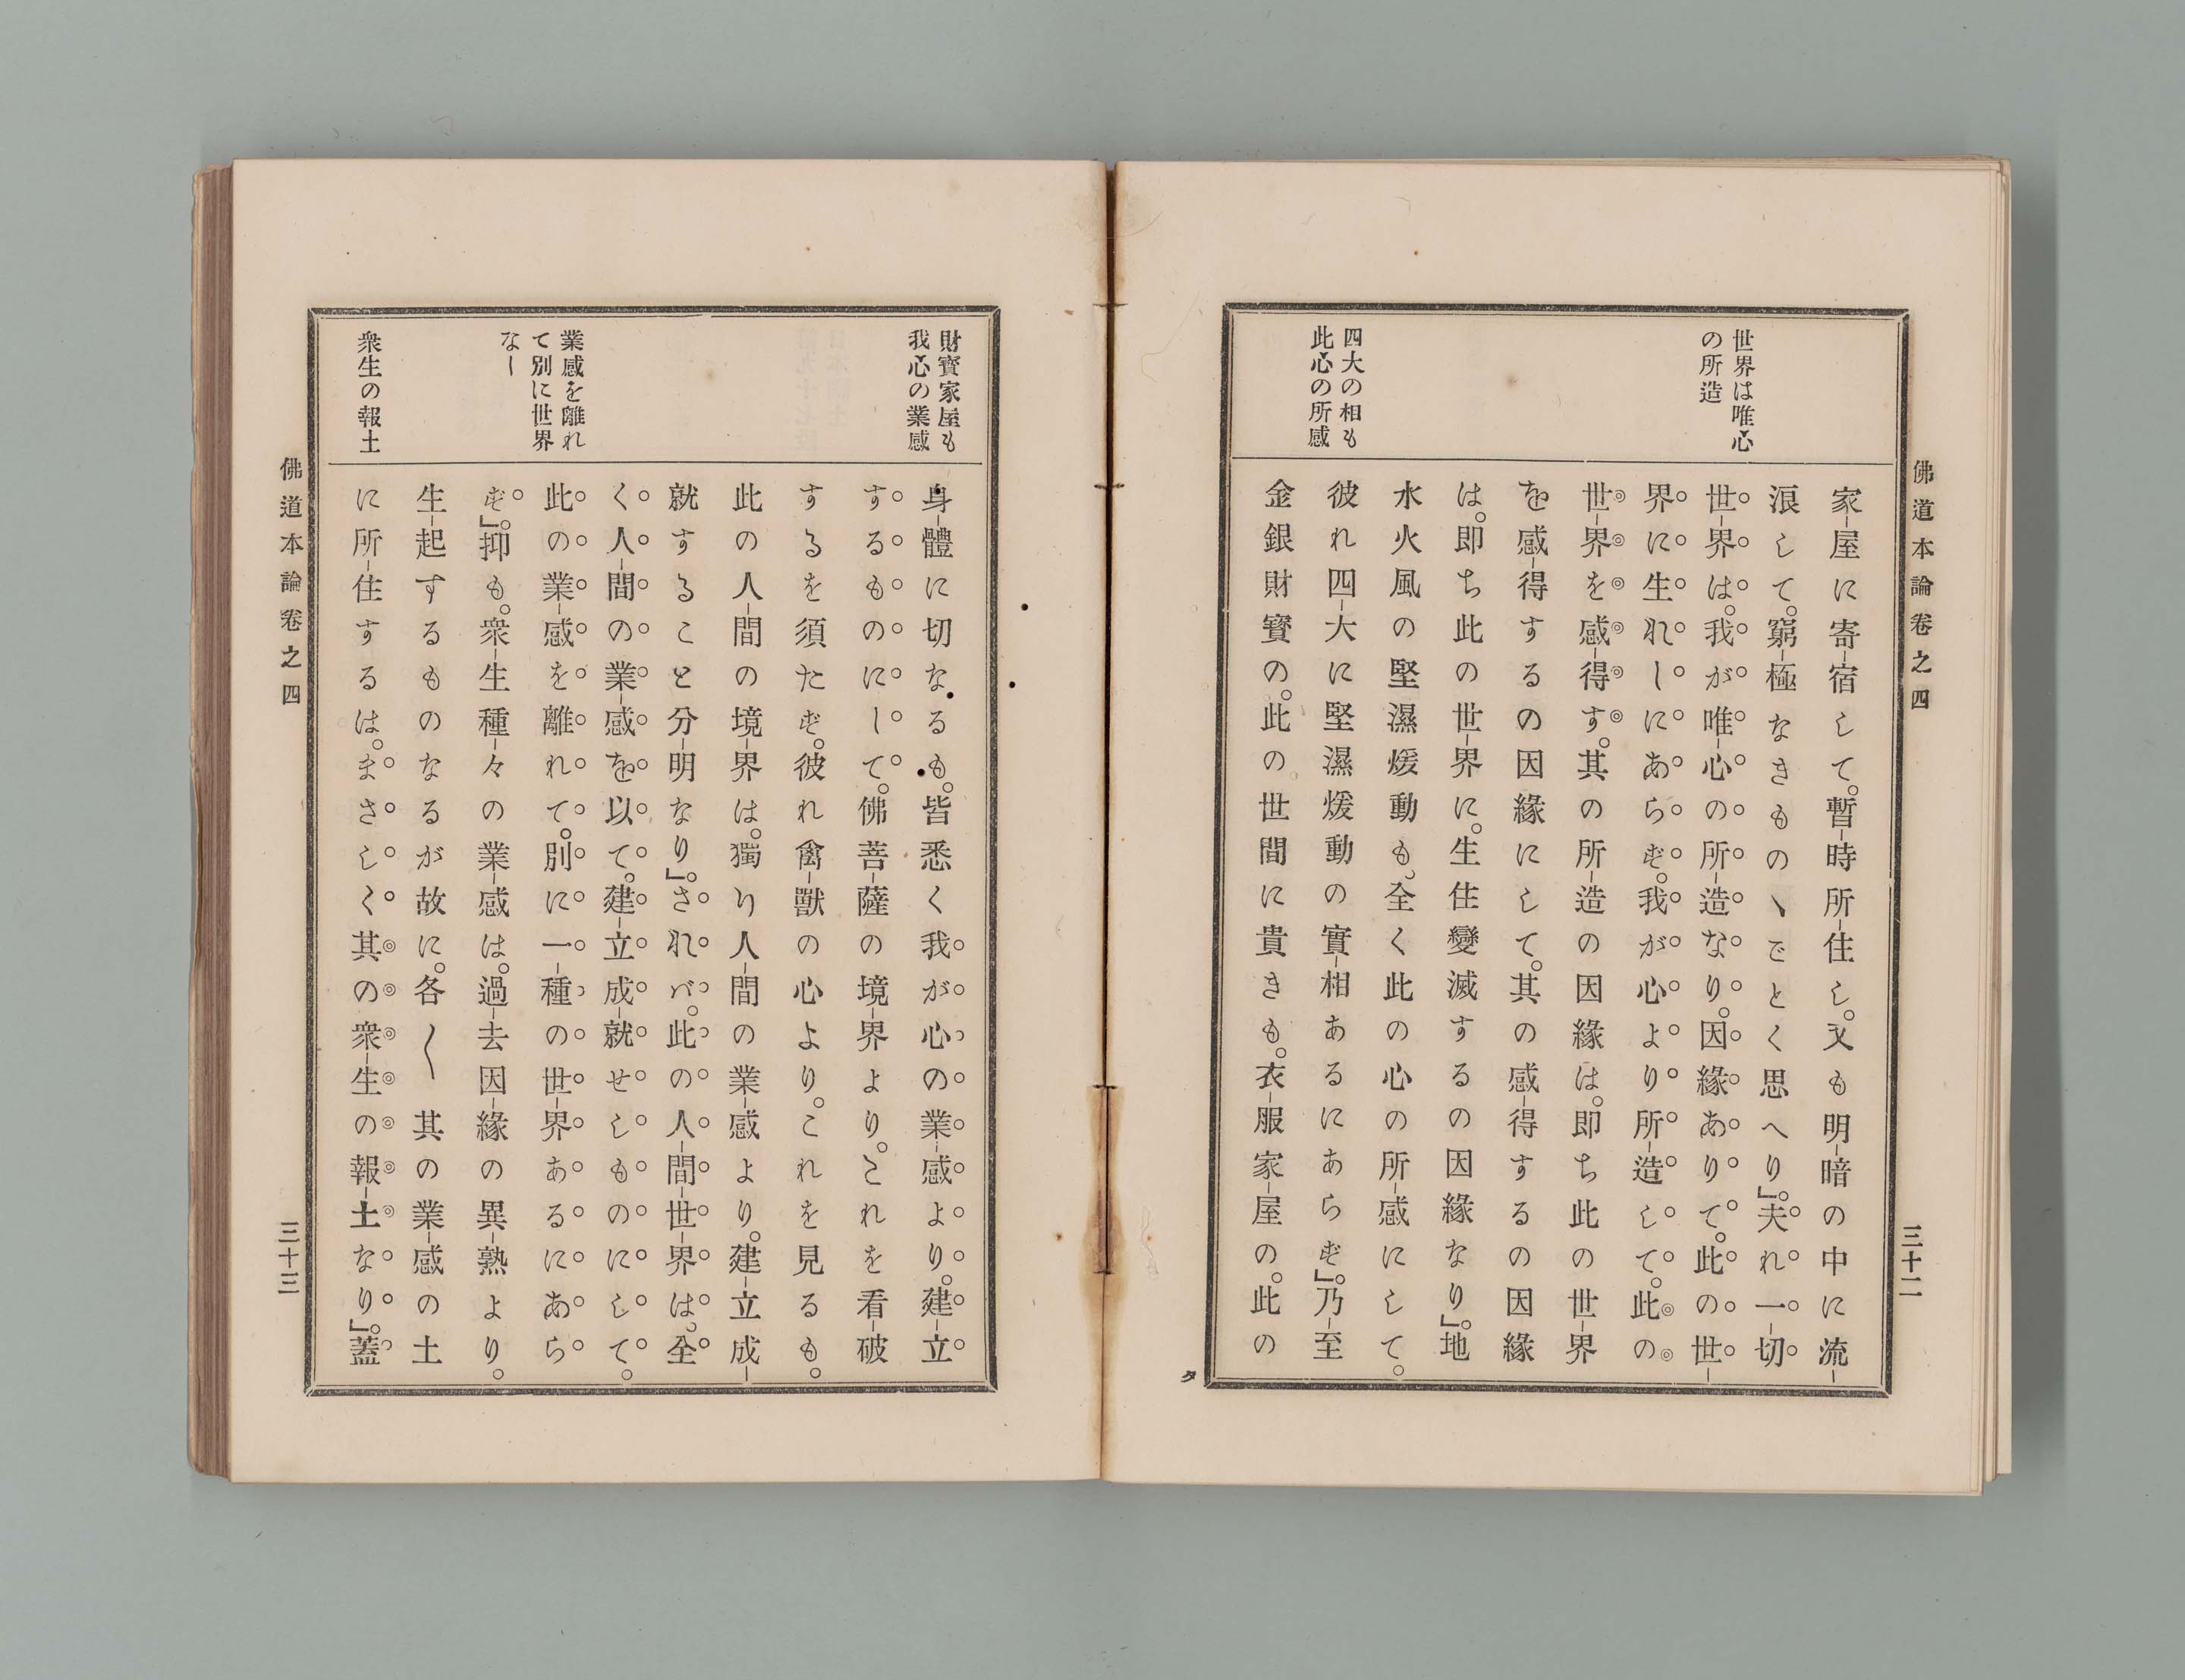 佛道本論卷之四
三十二
世界は唯心
の所造
四大の相も
此心の所感
家-屋に寄-宿して。暫-時所-住し。又も明-暗の中に流-
浪して。窮-極なきものゝごとく思へり」。夫れ一-切
世-界は。我が唯-心の所-造なり。因-緣ありて。此の世-
界に生れしにあらず。我が心より所-造して。此の
世-界を感-得す。其の所-造の因緣は。即ち此の世-界
を感-得するの因緣にして。其の感-得するの因緣
は。即ち此の世-界に。生住變滅するの因緣なり」。地
水火風の堅濕煖動も。全く此の心の所-感にして。
彼れ四-大に堅濕煖動の實-相あるにあらず」。乃-至
金銀財寳の。此の世間に貴きも。衣-服家-屋の。此の
タ
財寳家屋も
我心の業感
業感を離れ
て別に世界
なし
衆生の報土
身-體に切なるも。皆悉く我が心の業-感より。建-立
するものにして。佛菩-薩の境-界より。これを看-破
するを須たず。彼れ禽-獸の心より。これを見るも。
此の人-間の境-界は。獨り人-間の業-感より。建-立成-
就すること分-明なり」。されバ。此の人-間-世-界は。全
く人-間の業-感を以て。建-立成-就せしものにして。
此の業-感を離れて。別に一-種の世-界あるにあら
ず」。抑も。衆-生種-々の業-感は。過-去因-緣の異-熟より。
生-起するものなるが故に。各〱其の業-感の土
に所-住するは。まさしく其の衆-生の報-土なり」。蓋
佛道本論卷之四
三十三